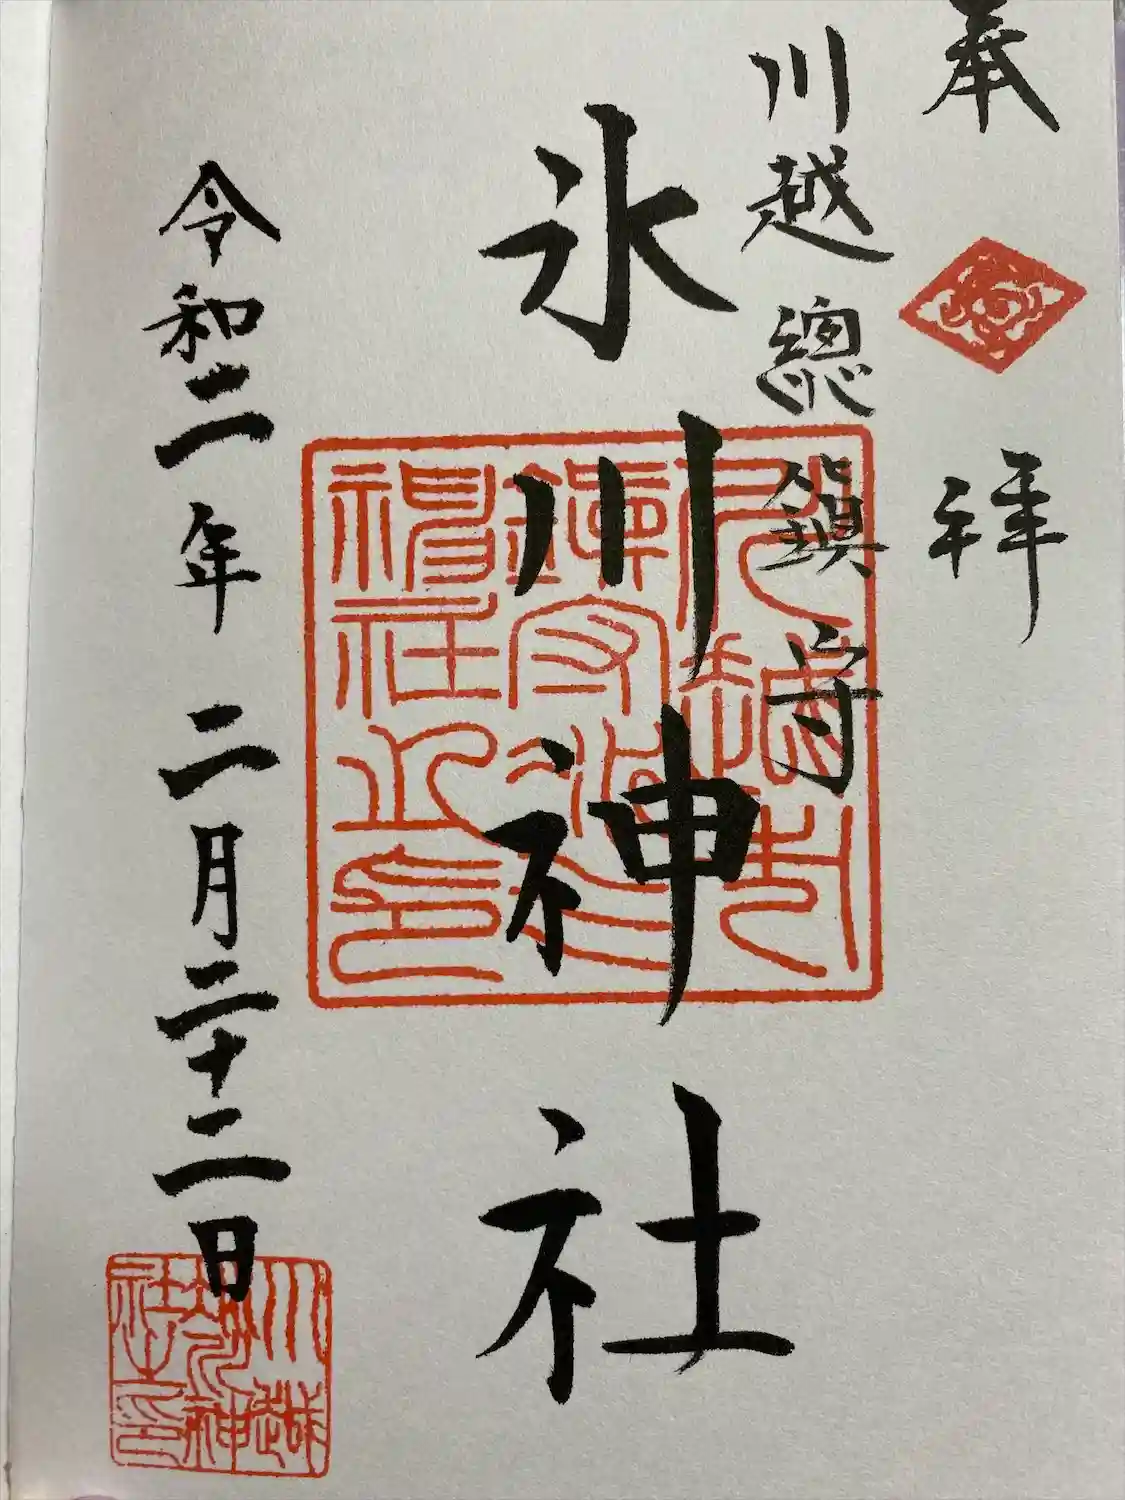 奉拝
川越總鎮守
氷川神社
令和二年二月二十二日
川越氷川神社之印